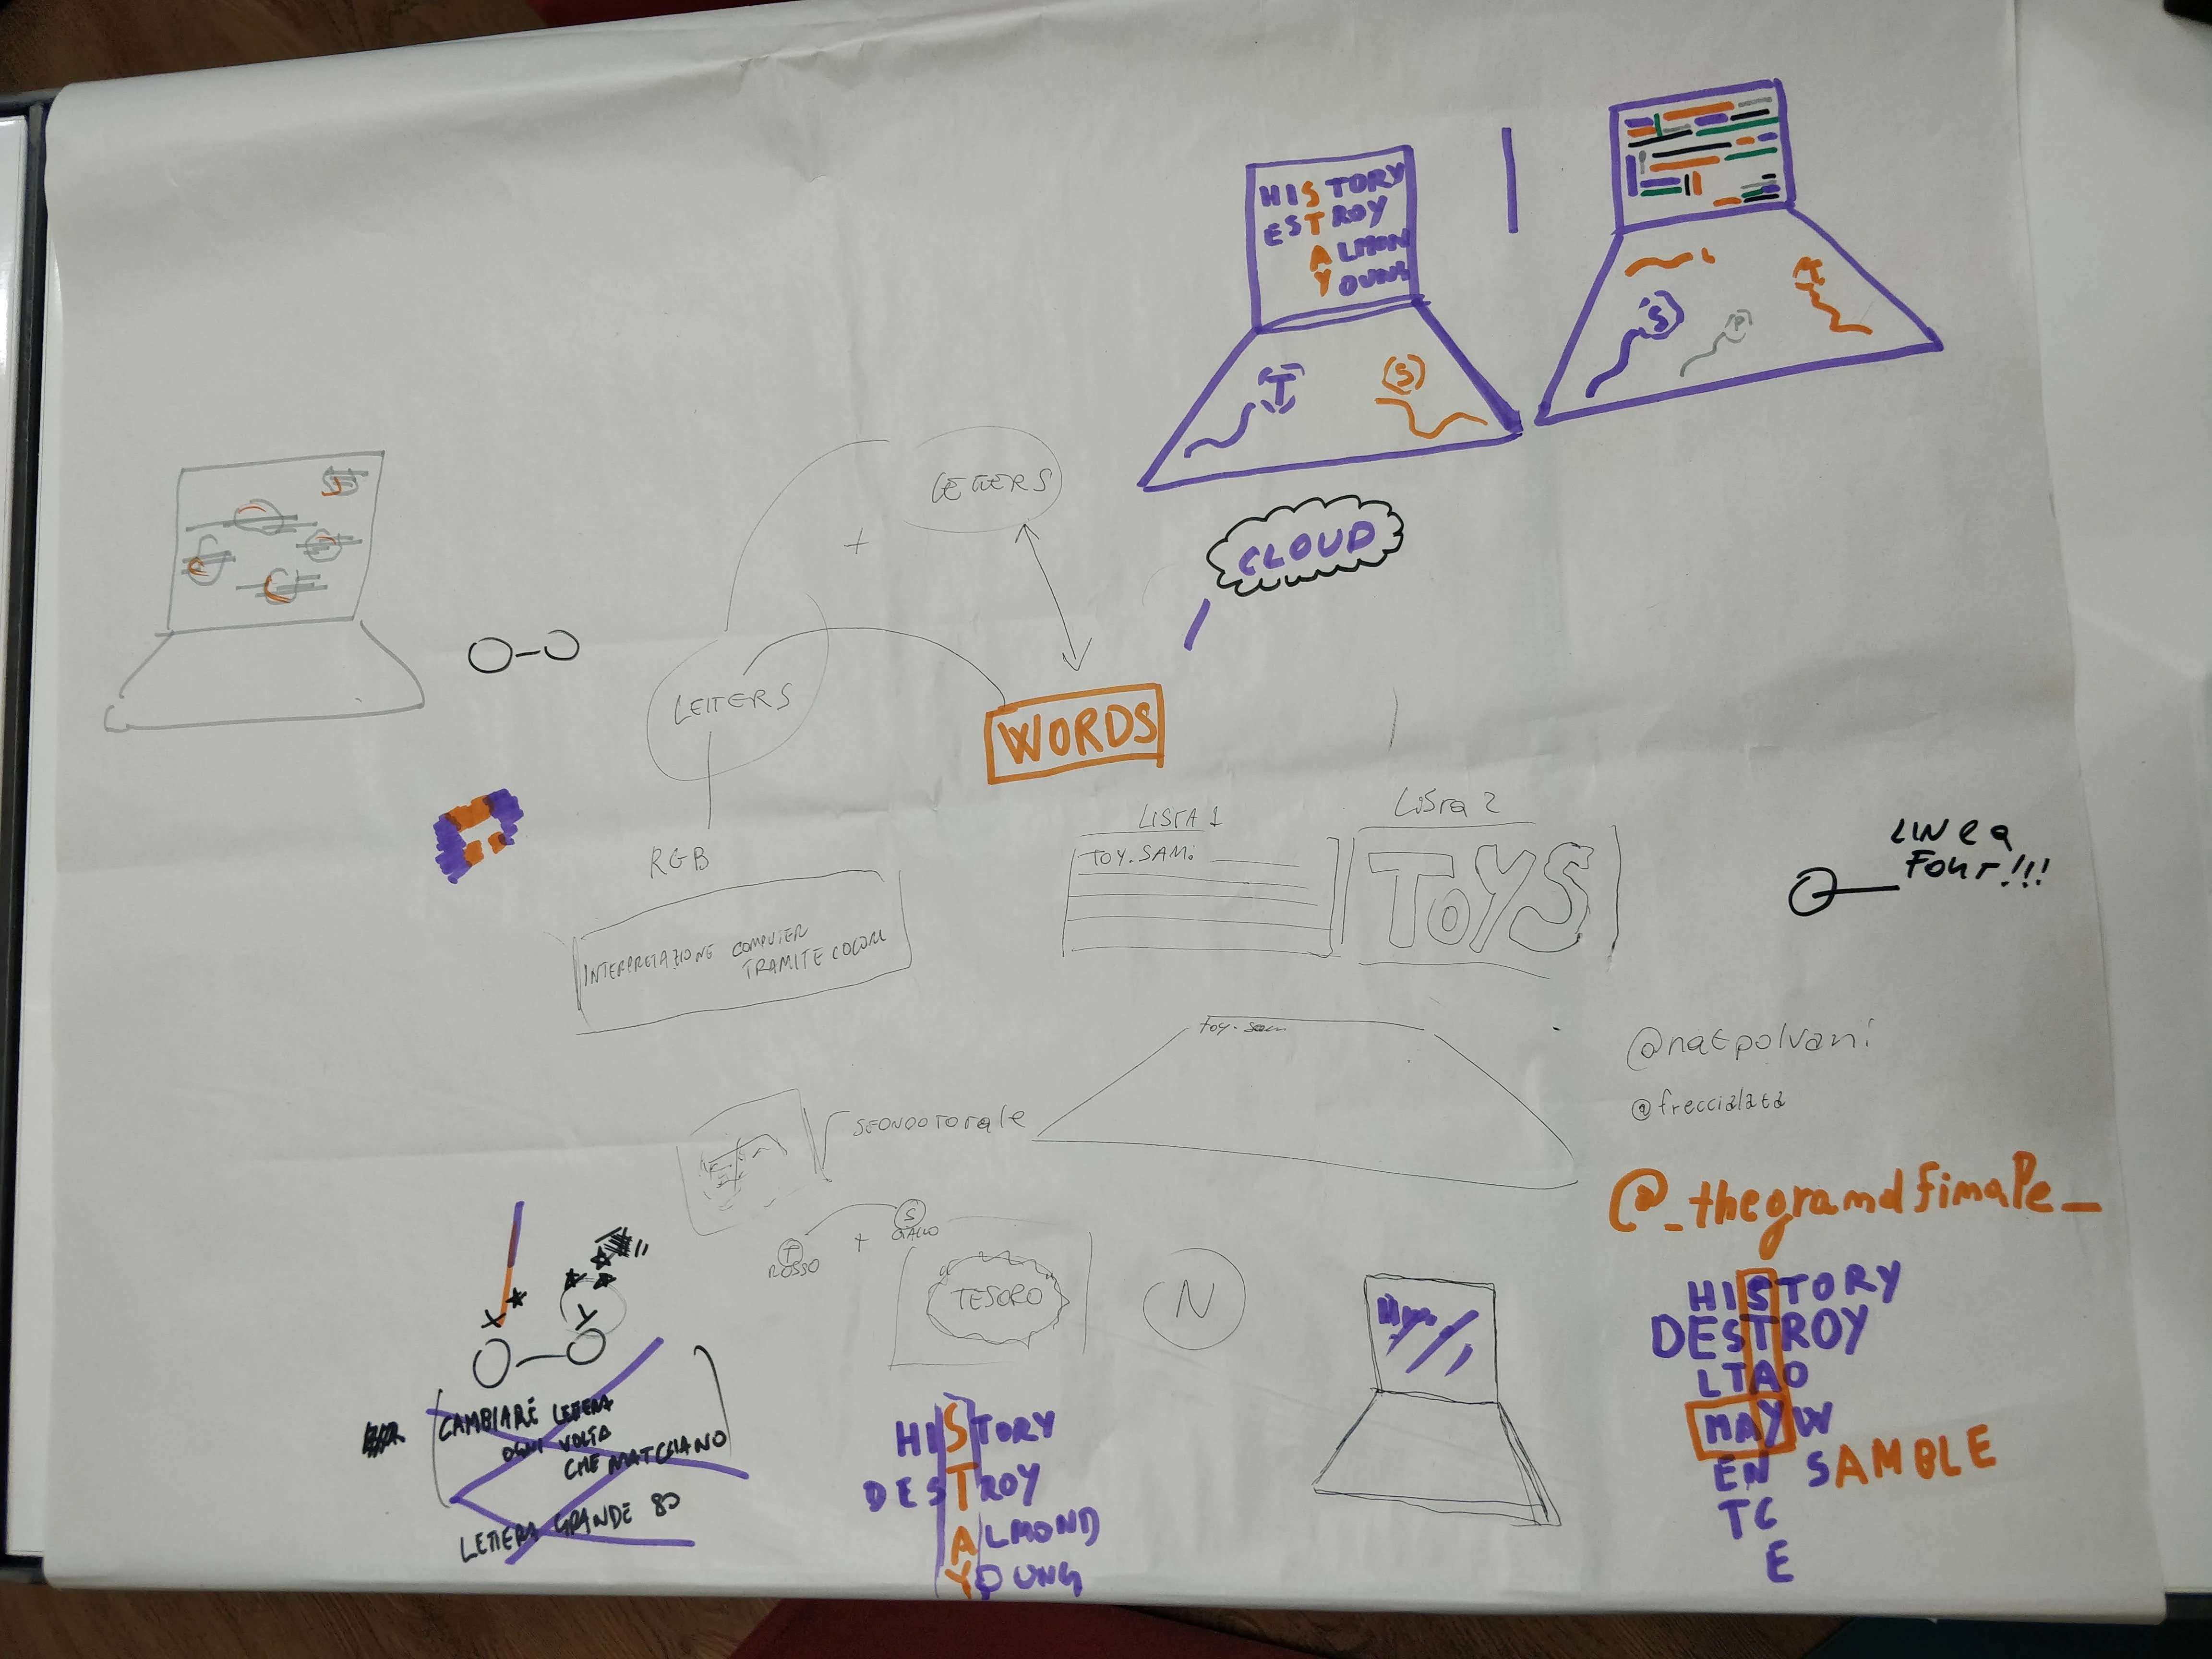 HISTORY
ESTROY
ALMON
YOUNG
T
S
S
P
T
CLOUD
LETTERS
+
LETTERS
WORDS
RGB
INTERPRETAZIONE COMPUTER
TRAMITE COLORI
LISTA 1
TOY. SAM.
LISTA 2
TOYS
LINEA
FONT!!!
toy. sam
@natpolvani
@freccialata
@_thegrandfinale_
T
ROSSO
+
S
GIALLO
TESORO
N
X
Y
CAMBIARE LETTERA
OGNI VOLTA
CHE MATCCIANO
LETTERA GRANDE 80
HISTORY
DESTROY
ALMOND
YOUNG
HISTORY
DESTROY
LTAO
MAYW
EN SAMBLE
TC
E